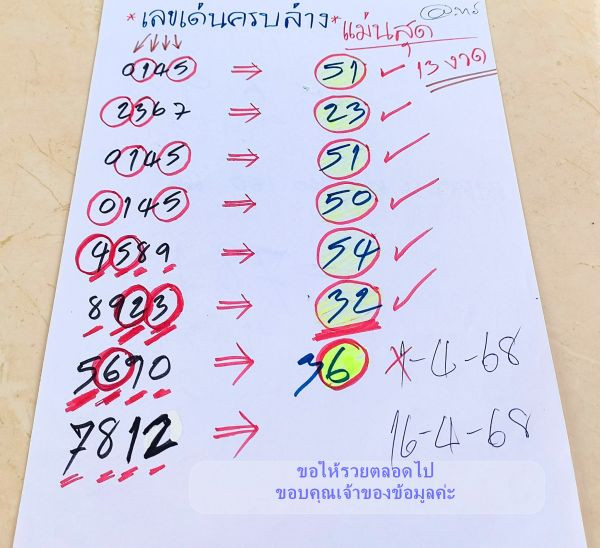 *เลขเด่นครบล่าง* แม่นสุด
0145 ⇒ 51 ✓ 13 งวด
2367 ⇒ 23 ✓
0145 ⇒ 51 ✓
0145 ⇒ 50 ✓
4589 ⇒ 54 ✓
8923 ⇒ 32 ✓
5690 ⇒ 36 1-4-68
7812 ⇒ 16-4-68
ขอให้รวยตลอดไป
ขอบคุณเจ้าของข้อมูลค่ะ